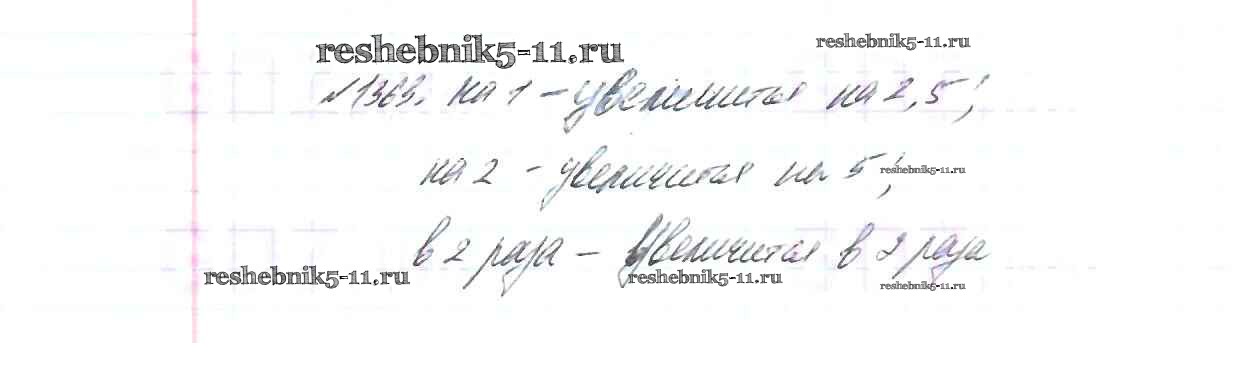 reshebnik5-11.ru
reshebnik5-11.ru
№1363. на 1 - увеличится на 2,5;
на 2 - увеличится на 5;
reshebnik5-11.ru
в 2 раза - увеличится в 2 раза
reshebnik5-11.ru
reshebnik5-11.ru
reshebnik5-11.ru